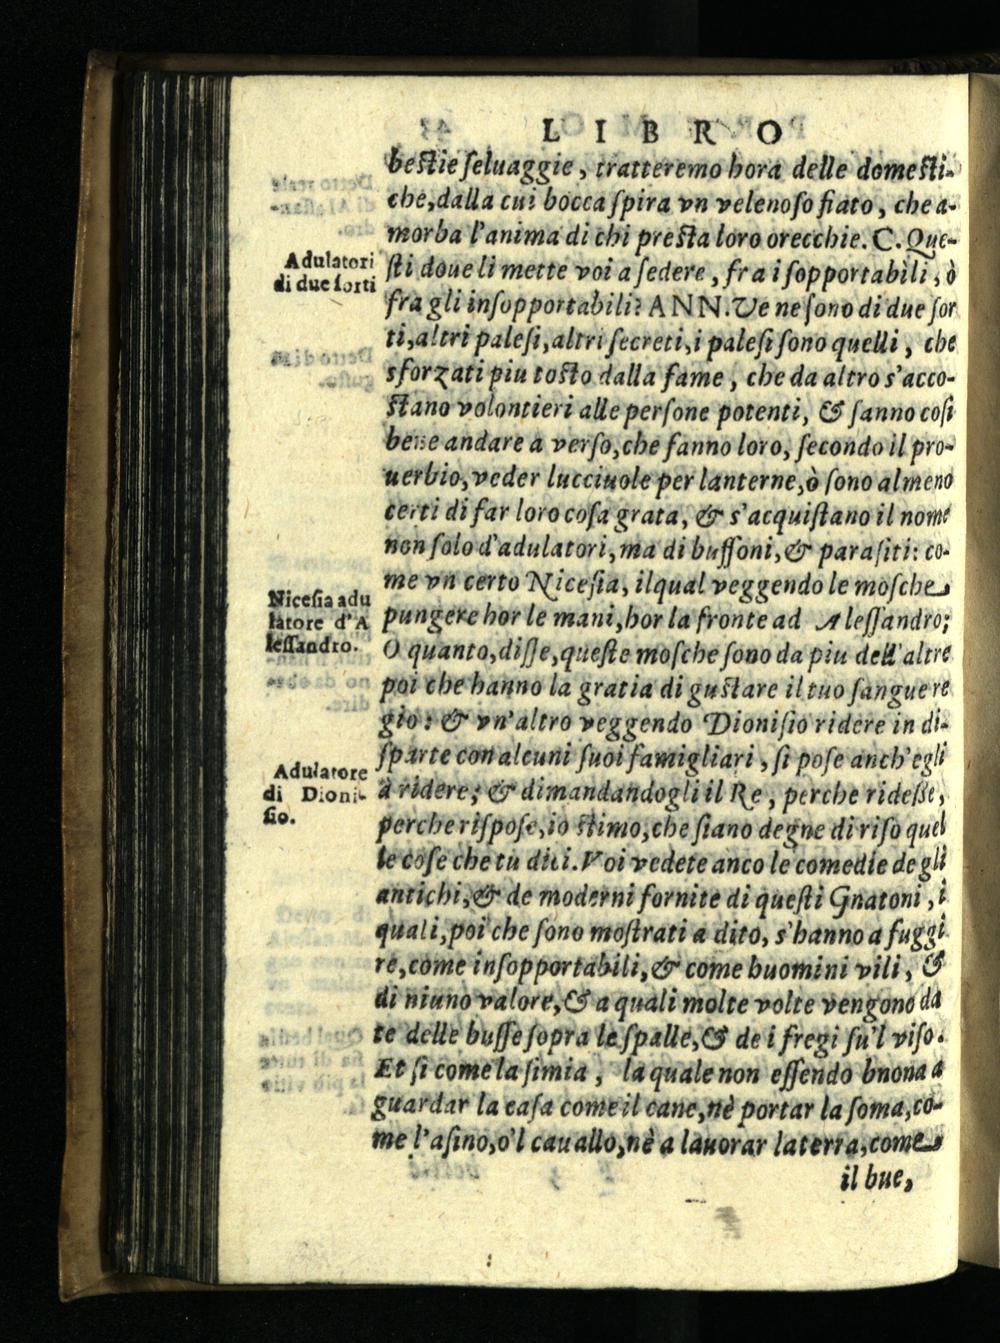 LIBRO
bestie seluaggie, tratteremo hora delle domesti-
che, dalla cui bocca spira vn velenoso fiato, che a-
morba l'anima di chi presta loro orecchie. C. Que-
Adulatori
di due sorti
sti doue li mette voi a sedere, fra i sopportabili, ò
fra gli insopportabili? ANN. Ve ne sono di due sor
ti, altri palesi, altri secreti, i palesi sono quelli, che
sforzati piu tosto dalla fame, che da altro s'acco-
stano volontieri alle persone potenti, & sanno cosi
bene andare a verso, che fanno loro, secondo il pro-
uerbio, veder lucciuole per lanterne, ò sono almeno
certi di far loro cosa grata, & s'acquistano il nome
non solo d'adulatori, ma di buffoni, & parasiti: co-
me vn certo Nicesia, ilqual veggendo le mosche
Nicesia adu
latore d'A
lessandro.
pungere hor le mani, hor la fronte ad Alessandro;
O quanto, disse, queste mosche sono da piu dell'altre
poi che hanno la gratia di gustare il tuo sangue re
gio: & vn'altro veggendo Dionisio ridere in di-
sparte con alcuni suoi famigliari, si pose anch'egli
Adulatore
di Dioni-
sio.
à ridere; & dimandandogli il Re, perche ridesse,
perche rispose, io stimo, che siano degne di riso quel
le cose che tu dici. Voi vedete anco le comedie de gli
antichi, & de moderni fornite di questi Gnatoni, i
quali, poi che sono mostrati a dito, s'hanno a fuggi
re, come insopportabili, & come huomini vili, &
di niuno valore, & a quali molte volte vengono da
te delle busse sopra le spalle, & de i fregi su'l viso.
Et si come la simia, la quale non essendo bnona a
guardar la casa come il cane, nè portar la soma, co-
me l'asino, o'l cauallo, nè a lauorar la terra, come
il bue,